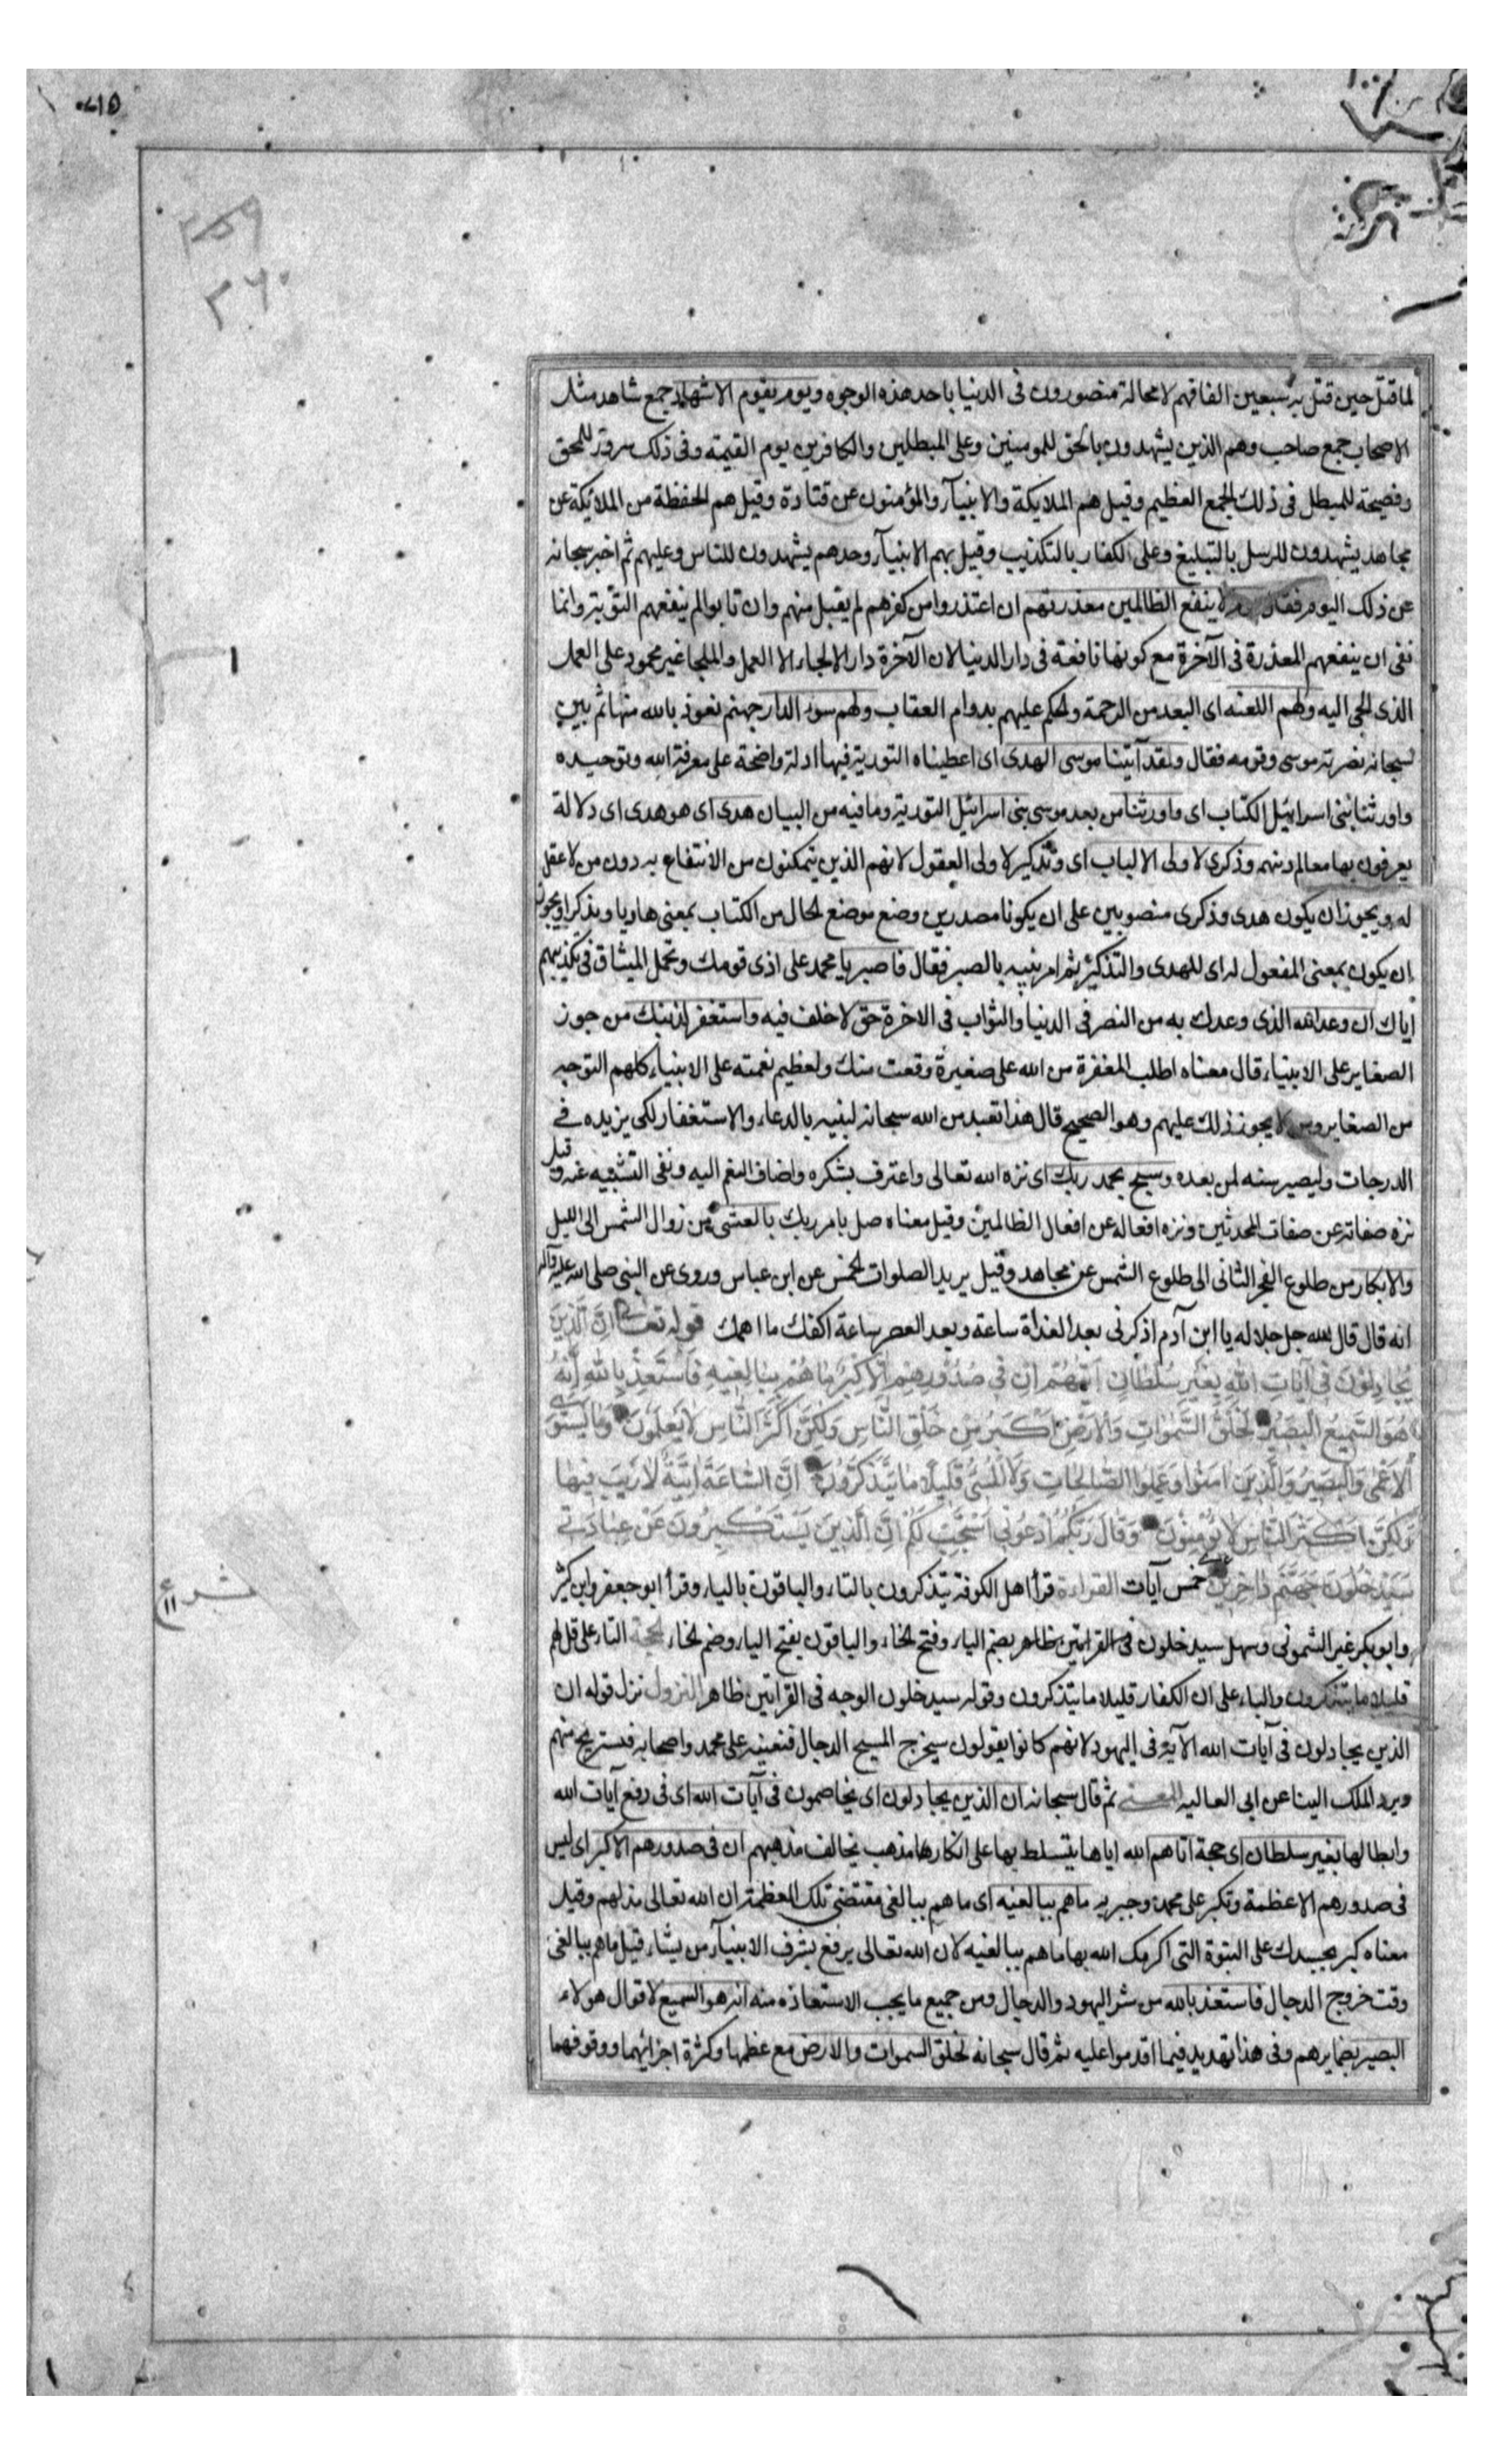 ۵۱۷۰
۳۵۹
۳۶۰
لما قتل حين قتل به سبعين الفا فهم لا محالة منصورون فى الدنيا باحد هذه الوجوه ويوم يقوم الاشهاد جمع شاهد مثل
الاصحاب جمع صاحب وهم الذين يشهدون بالحق للمومنين وعلى المبطلين والكافرين يوم القيمة وفى ذلك سرور للمحق
وفضيحة للمبطل فى ذلك الجمع العظيم وقيل هم الملايكة والانبيآء والمؤمنون عن قتادة وقيل هم الحفظة من الملائكة عن
مجاهد يشهدون للرسل بالتبليغ وعلى الكفار بالتكذيب وقيل هم الانبيآء وحدهم يشهدون للناس وعليهم ثم اخبر سبحانه
عن ذلك اليوم فقال لا ينفع الظالمين معذرتهم ان اعتذروا من كفرهم لم يقبل منهم وان تابوا لم ينفعهم التوبة وانما
نفى ان ينفعهم المعذرة فى الآخرة مع كونها نافعة فى دار الدنيا لان الآخرة دار الالجاء لا العمل والملجا غير محمود على العمل
الذى الجى اليه ولهم اللعنه اى البعد من الرحمة والحكم عليهم بدوام العقاب ولهم سوء الدار جهنم نعوذ بالله منها ثم بين
سبحانه نصرته موسى وقومه فقال ولقد آتينا موسى الهدى اى اعطيناه التورية فيها ادلة واضحة على معرفة الله وتوحيده
واورثنا بنى اسرائيل الكتاب اى واورثنا من بعد موسى بنى اسرائيل التورية وما فيه من البيان هدى اى هو هدى اى دلالة
يعرفون بها معالم دينهم وذكرى لاولى الالباب اى وتذكير لاولى العقول لانهم الذين يتمكنون من الانتفاع به دون من لا عقل
له ويجوز ان يكون هدى وذكرى منصوبين على ان يكونا مصدرين وضع موضع الحال من الكتاب بمعنى هاديا ومذكرا ويجوز
ان يكون بمعنى المفعول له اى للهدى والتذكير ثم امر نبيه بالصبر فقال فاصبر يا محمد على اذى قومك وتحمل الميثاق فى تكذيبهم
اياك ان وعد الله الذى وعدك به من النصر فى الدنيا والثواب فى الاخرة حق لا خلف فيه واستغفر لذنبك من جوز
الصغاير على الانبياء قال معناه اطلب المغفرة من الله على صغيرة وقعت منك ولعظيم نعمته على الانبياء كلهم التوجه
من الصغاير ومن لا يجوز ذلك عليهم وهو الصحيح قال هذا تعبد من الله سبحانه لنبيه بالدعاء والاستغفار لكى يزيده فى
الدرجات وليصير سنه لمن بعده وسبح بحمد ربك اى نزه الله تعالى واعترف بشكره واضاف النعم اليه ونفى التشبيه عنه وقيل
نزه صفاته عن صفات المحدثين ونزه افعاله عن افعال الظالمين وقيل معناه صل بامر ربك بالعشى من زوال الشمس الى الليل
والابكار من طلوع الفجر الثانى الى طلوع الشمس عن مجاهد وقيل يريد الصلوات الخمس عن ابن عباس وروى عن النبى صلى الله عليه وآله
انه قال قال الله جل جلاله يا ابن آدم اذكرنى بعد الغداة ساعة وبعد العصر ساعة اكفك ما اهمك قوله تعالى اِنَّ الَّذينَ
يُجادِلُونَ فى آياتِ اللهِ بِغَيْرِ سُلْطانٍ اَتيهُمْ اِنْ فى صُدُورِهِمْ اِلّا كِبْرٌ ما هُمْ بِبالِغيهِ فَاسْتَعِذْ بِاللهِ اِنَّهُ
هُوَ السَّميعُ الْبَصيرُ لَخَلْقُ السَّمواتِ وَالاَرْضِ اَكْبَرُ مِنْ خَلْقِ النّاسِ وَلكِنَّ اَكْثَرَ النّاسِ لا يَعْلَمُونَ وَما يَسْتَوى
الاَعْمى وَالْبَصيرُ وَالَّذينَ امَنُوا وَعَمِلُوا الصّالِحاتِ وَلَا الْمُسىءُ قَليلًا ما تَتَذَكَّرُونَ اِنَّ السّاعَةَ لَاتِيَةٌ لا رَيْبَ فيها
وَلكِنَّ اَكْثَرَ النّاسِ لا يُؤْمِنُونَ وَقالَ رَبُّكُمُ ادْعُونى اَسْتَجِبْ لَكُمْ اِنَّ الَّذينَ يَسْتَكْبِرُونَ عَنْ عِبادَتى
سَيَدْخُلُونَ جَهَنَّمَ داخِرينَ خمس آيات القراءة قرأ اهل الكوفة تتذكرون بالتاء والباقون بالياء وقرأ ابو جعفر وابن كثير
وابو بكر غير الشمونى وسهل سيدخلون فى القراءتين ظاهر بضم الياء وفتح الخاء والباقون بفتح الياء وضم الخاء الحجة التاء على قل لهم
قليلا ما تتذكرون والياء على ان الكفار قليلا ما يتذكرون وقوله سيدخلون الوجه فى القرائتين ظاهر النزول نزل قوله ان
الذين يجادلون فى آيات الله الآية فى اليهود لانهم كانوا يقولون سيخرج المسيح الدجال فنعينه على محمد واصحابه فنستريح منهم
ويرد الملك الينا عن ابى العاليه المعنى ثم قال سبحانه ان الذين يجادلون اى يخاصمون فى آيات الله اى فى رفع آيات الله
وابطالها بغير سلطان اى حجة اتاهم الله اياها يتسلط بها على انكارها مذهب يخالف مذهبهم ان فى صدورهم الا كبر اى ليس
فى صدورهم الا عظمة وتكبر على محمد وجبريه ما هم ببالغيه اى ما هم ببالغى مقتضى تلك العظمة لان الله تعالى مذلهم وقيل
معناه كبر بحسدك على النبوة التى اكرمك الله بها ما هم ببالغيه لان الله تعالى يرفع بشرف الانبيآء من يشاء قيل ما هم ببالغى
وقت خروج الدجال فاستعذ بالله من شر اليهود والدجال ومن جميع ما يجب الاستعاذه منه انه هو السميع لاقوال هولاء
البصير بضمايرهم وفى هذا تهديد فيما اقدموا عليه ثم قال سبحانه لخلق السموات والارض مع عظمها وكثرة اجزائهما ووقوفهما